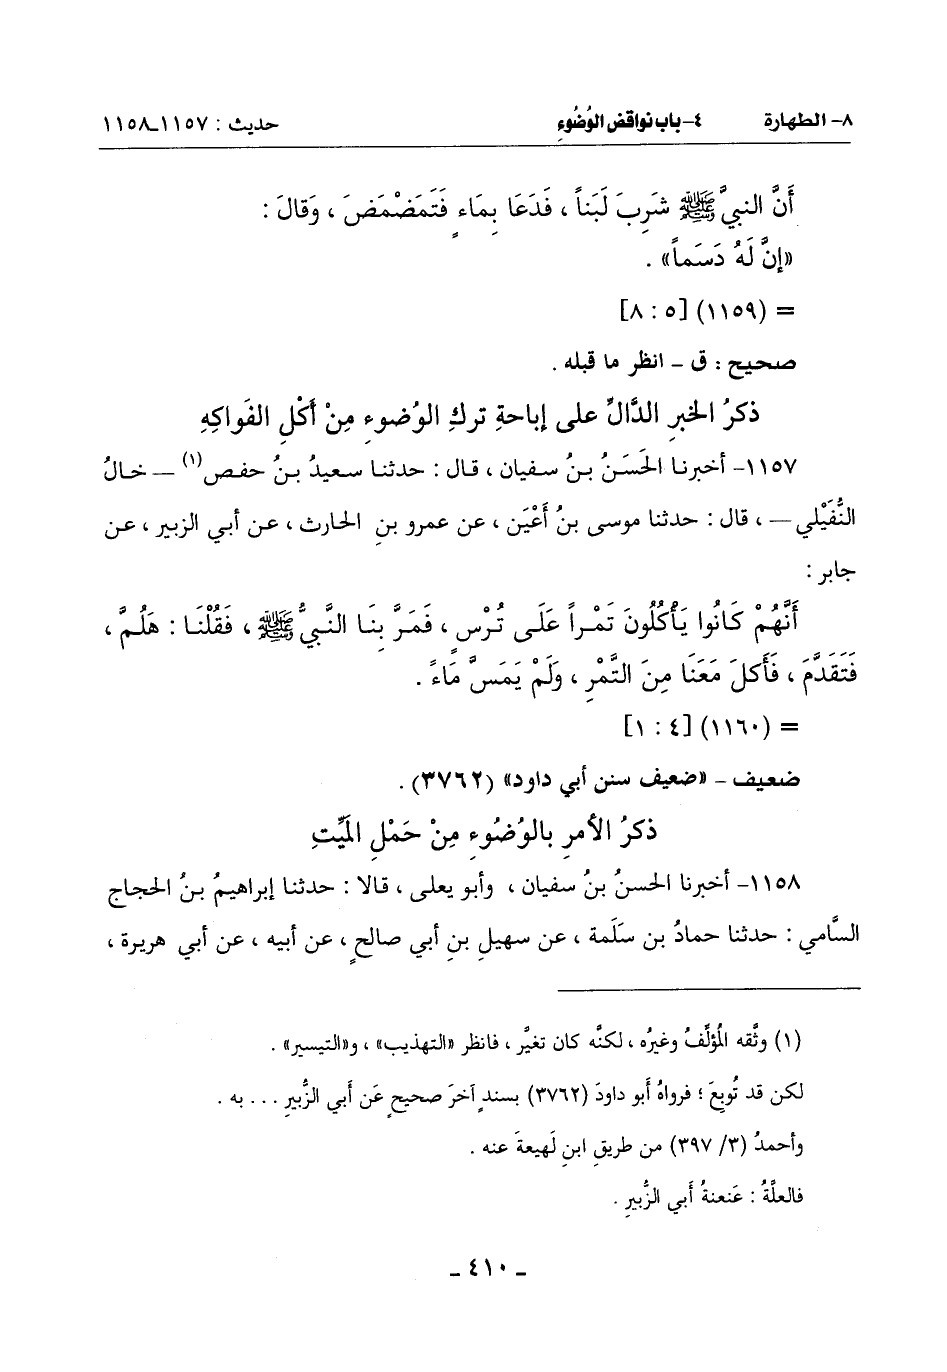 ٨- الطهارة ٤- باب نواقض الوُضُوءِ حديث : ١١٥٧-١١٥٨
أَنَّ النبيَّ ﷺ شَرِبَ لَبَناً ، فَدَعَا بِمَاءٍ فَتَمَضْمَضَ ، وَقالَ :
«إنَّ لَهُ دَسَماً» .
= (١١٥٩) [٥ : ٨]
صحيح : ق - انظر ما قبله .
ذكرُ الخبرِ الدَّالِّ على إباحةِ تركِ الوُضوءِ مِنْ أَكْلِ الفَواكِهِ
١١٥٧- أخبرنا الحَسَنُ بنُ سفيان ، قال : حدثنا سعيدُ بنُ حفص(١) — خالُ
النُّفَيْلي — ، قال : حدثنا موسى بنُ أَعْيَن ، عن عمرو بنِ الحارث ، عن أبي الزبير ، عن
جابر :
أَنَّهُمْ كَانُوا يَأْكُلُونَ تَمْراً عَلَى تُرْسٍ ، فَمَرَّ بِنَا النَّبيُّ ﷺ ، فَقُلْنَا : هَلُمَّ ،
فَتَقَدَّمَ ، فَأَكلَ مَعَنَا مِنَ التَّمْرِ ، وَلَمْ يَمَسَّ مَاءً .
= (١١٦٠) [٤ : ١]
ضعيف - «ضعيف سنن أبي داود» (٣٧٦٢) .
ذكرُ الأمرِ بالوُضُوءِ مِنْ حَمْلِ المَيِّتِ
١١٥٨- أخبرنا الحسنُ بنُ سفيان ، وأبو يعلى ، قالا : حدثنا إبراهيمُ بنُ الحجاج
السَّامي : حدثنا حمادُ بن سَلَمة ، عن سهيلِ بنِ أبي صالحٍ ، عن أبيه ، عن أبي هريرة ،
(١) وثَّقه المُؤلِّفُ وغيرُه ، لكنَّه كان تغيَّر ، فانظر «التهذيب» ، و«التيسير» .
لكن قد تُوبعَ ؛ فرواهُ أَبو داودَ (٣٧٦٢) بسندٍ آخرَ صحيحٍ عَن أَبي الزُّبيرِ . . . به .
وأحمدُ (٣/ ٣٩٧) من طريقِ ابنِ لَهيعةَ عنه .
فالعلَّةُ : عَنعنةُ أَبي الزُّبيرِ .
- ٤١٠ -